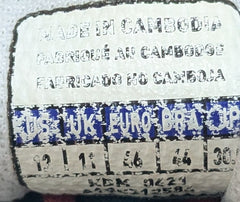 MADE IN CAMBODIA
FABRIQUÉ AU CAMBODGE
FABRICADO NO CAMBOJA
US UK EURO BRA JP
12 11 46 44 30.